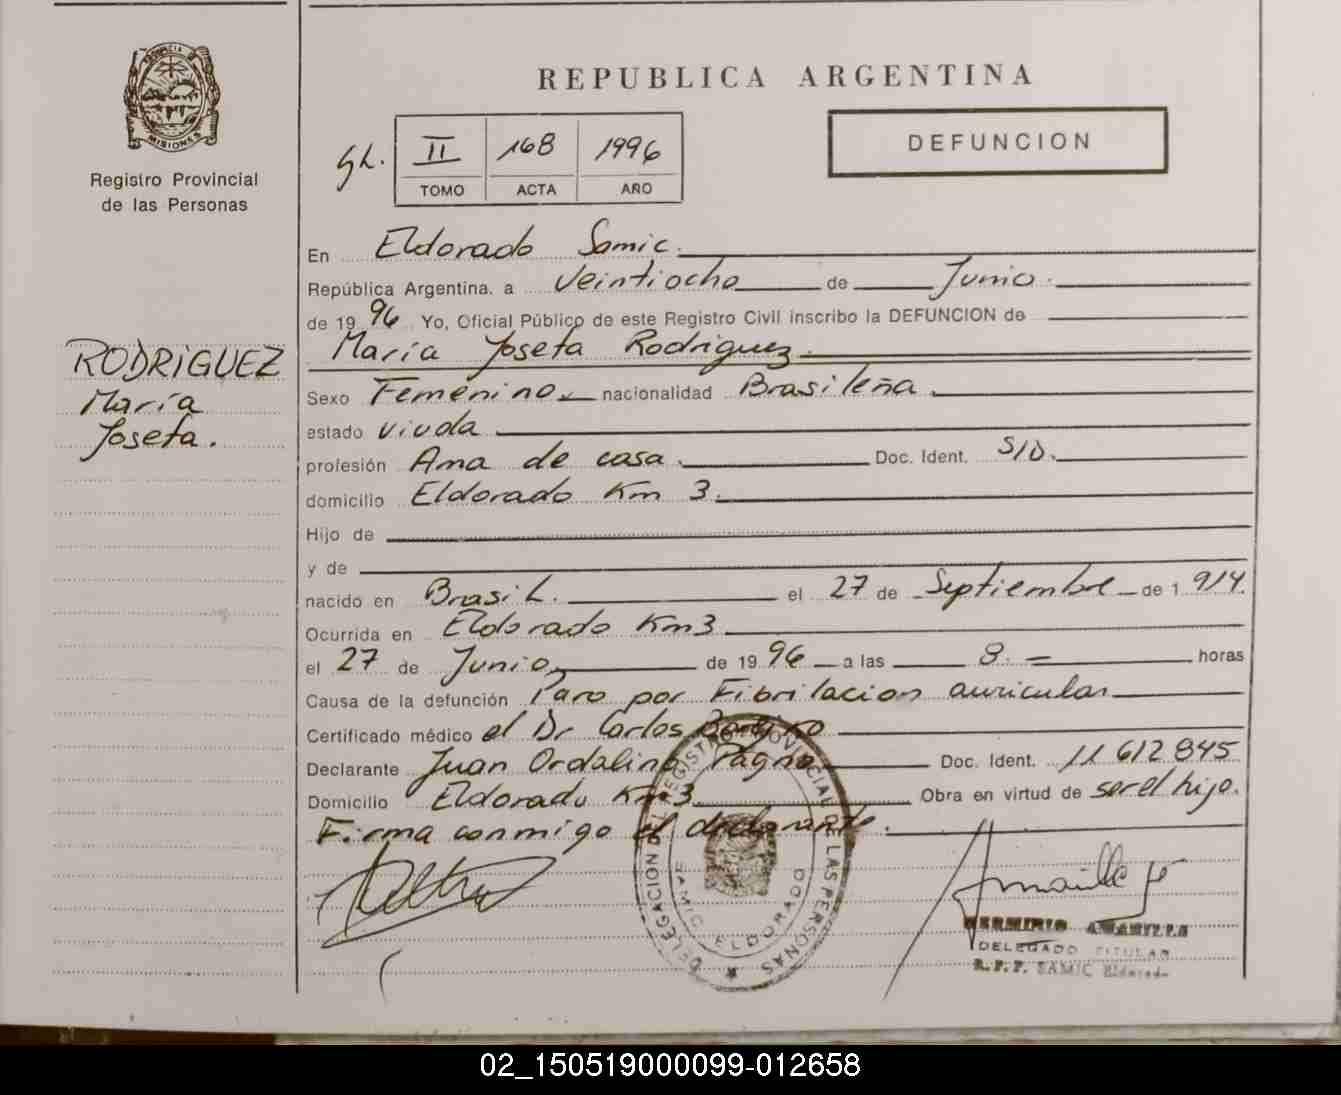 REPUBLICA ARGENTINA
PROVINCIA DE
MISIONES
Registro Provincial
de las Personas
II 168 1996
TOMO ACTA AÑO
DEFUNCION
En Eldorado Samic.
República Argentina, a Veintiocho de Junio.
de 1996 Yo, Oficial Público de este Registro Civil inscribo la DEFUNCION de
María Josefa Rodriguez
RODRIGUEZ
María
Josefa.
Sexo Femenino nacionalidad Brasileña
estado viuda
profesión Ama de casa. Doc. Ident. S/D.
domicilio Eldorado Km 3.
Hijo de
y de
nacido en Brasil. el 27 de Septiembre de 1914.
Ocurrida en Eldorado Km3
el 27 de Junio de 1996 a las 8. horas
Causa de la defunción Paro por Fibrilacion auricular
Certificado médico el Dr Carlos
Declarante Juan Ordalino Doc. Ident. 11 612 845
Domicilio Eldorado Km3 Obra en virtud de ser el hijo.
Firma conmigo el declarante.
DELEGACION DEL REGISTRO PROVINCIAL DE LAS PERSONAS
SAMIC ELDORADO
HERMINIO AMARILLA
DELEGADO TITULAR
R.P.P. SAMIC Eldorado
02_150519000099-012658